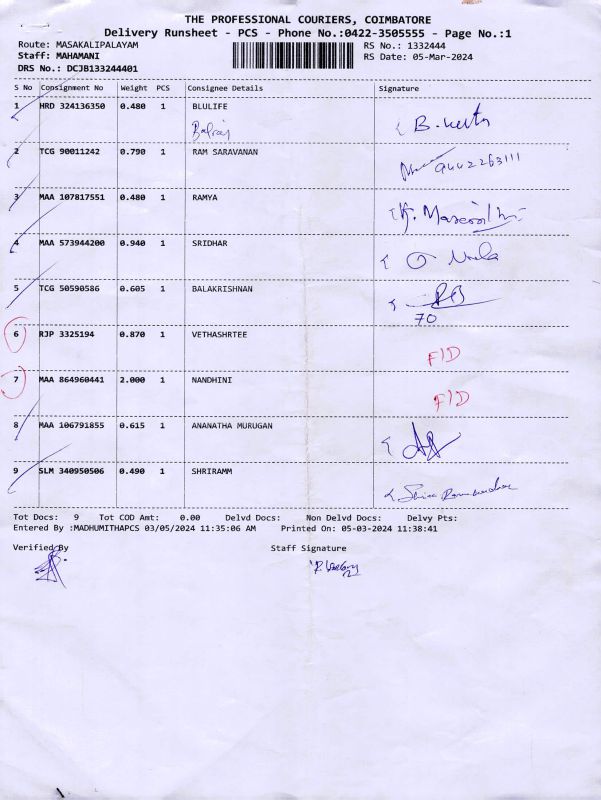 THE PROFESSIONAL COURIERS, COIMBATORE
Delivery Runsheet - PCS - Phone No.:0422-3505555 - Page No.:1
Route: MASAKALIPALAYAM RS No.: 1332444
Staff: MAHAMANI RS Date: 05-Mar-2024
DRS No.: DCJB133244401
S No Consignment No Weight PCS Consignee Details Signature
1 HRD 324136350 0.480 1 BLULIFE
Balraj
2 TCG 90011242 0.790 1 RAM SARAVANAN
9442263111
3 MAA 107817551 0.480 1 RAMYA
4 MAA 573944200 0.940 1 SRIDHAR
5 TCG 50590586 0.605 1 BALAKRISHNAN
70
6 RJP 3325194 0.870 1 VETHASHRTEE
F/D
7 MAA 864960441 2.000 1 NANDHINI
F/D
8 MAA 106791855 0.615 1 ANANATHA MURUGAN
9 SLM 340950506 0.490 1 SHRIRAMM
Tot Docs: 9 Tot COD Amt: 0.00 Delvd Docs: Non Delvd Docs: Delvy Pts:
Entered By :MADHUMITHAPCS 03/05/2024 11:35:06 AM Printed On: 05-03-2024 11:38:41
Verified By Staff Signature